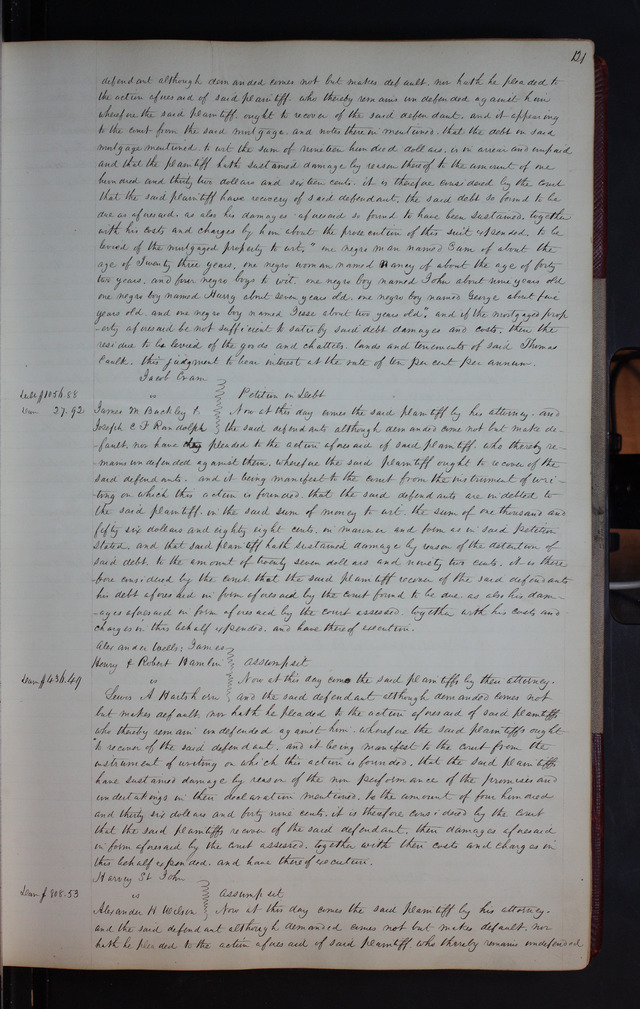 121
defendant although demanded comes not but makes default. nor hath he pleaded to
the action aforesaid of said plaintiff. who thereby remains undefended against him
wherefore the said plaintiff. ought to recover of the said defendant. and it appearing
to the court from the said mortgage. and notes therein mentioned. that the debt in said
mortgage mentioned. to wit the sum of nineteen hundred dollars. is in arrear and unpaid
and that the plaintiff hath sustained damage by reason thereof to the amount of one
hundred and thirty two dollars and sixteen cents. it is therefore considered by the court
that the said plaintiff have recovery of said defendant. the said debt so found to be
due as aforesaid. as also his damages aforesaid so found to have been sustained. together
with his costs and charges by him about the prosecution of this suit expended. to be
levied of the mortgaged property to wit. "one negro man named Sam of about the
age of Twenty three years, one negro woman named Nancy of about the age of forty
two years. and four negro boys to wit. one negro boy named John about nine years old
one negro boy named Harry about seven years old. one negro boy named George about five
years old. and one negro boy named Jesse about two years old". and if the mortgaged prop
-erty aforesaid be not sufficient to satisfy said debt damages and costs. then the
residue to be levied of the goods and chattels. lands and tenements of said Thomas
Caulk. this judgment to bear interest at the rate of ten per cent per annum.
Jacob Oram
Debt $1056.88 vs Petition in Debt
Dam 27.92. James M Buckley & Now at this day comes the said plaintiff by his attorney. and
Joseph C F Randolph the said defendants although demanded come not but make de-
-fault. nor have they pleaded to the action aforesaid of said plaintiff. who thereby re-
-mains undefended against them. wherefore the said plaintiff ought to recover of the
said defendants. and it being manifest to the court from the instrument of wri-
-ting on which this action is founded. that the said defendants are indebted to
the said plaintiff. in the said sum of money to wit the sum of one thousand and
fifty six dollars and eighty eight cents. in manner and form as in said Petition
stated. and that said plaintiff hath sustained damage by reason of the detention of
said debt. to the amount of twenty seven dollars and ninety two cents. it is there
fore considered by the court that the said plaintiff recover of the said defendants
his debt aforesaid in form aforesaid by the court found to be due. as also his dam-
-ages aforesaid in form aforesaid by the court assessed. together with his costs and
charges in this behalf expended. and have thereof execution.
Alexander Wells; James
Henry & Robert Hamlin assumpsit
Dam $436.49 vs Now at this day come the said plaintiffs by their attorney.
Lewis A Hartshorn and the said defendant although demanded comes not
but makes default. nor hath he pleaded to the action aforesaid of said plaintiffs
who thereby remain undefended against him. wherefore the said plaintiffs ought
to recover of the said defendant. and it being manifest to the court from the
instrument of writing on which this action is founded. that the said plaintiffs
have sustained damage by reason of the non performance of the promises and
undertakings in their declaration mentioned. to the amount of four hundred
and thirty six dollars and forty nine cents. it is therefore considered by the court
that the said plaintiffs recover of the said defendant. their damages aforesaid
in form aforesaid by the court assessed. together with their costs and charges in
this behalf expended. and have thereof execution.
Harvey St John
Dam $808.53 vs assumpsit
Alexander H Wilson Now at this day comes the said plaintiff by his attorney.
and the said defendant although demanded comes not but makes default. nor
hath he pleaded to the action aforesaid of said plaintiff who thereby remains undefended